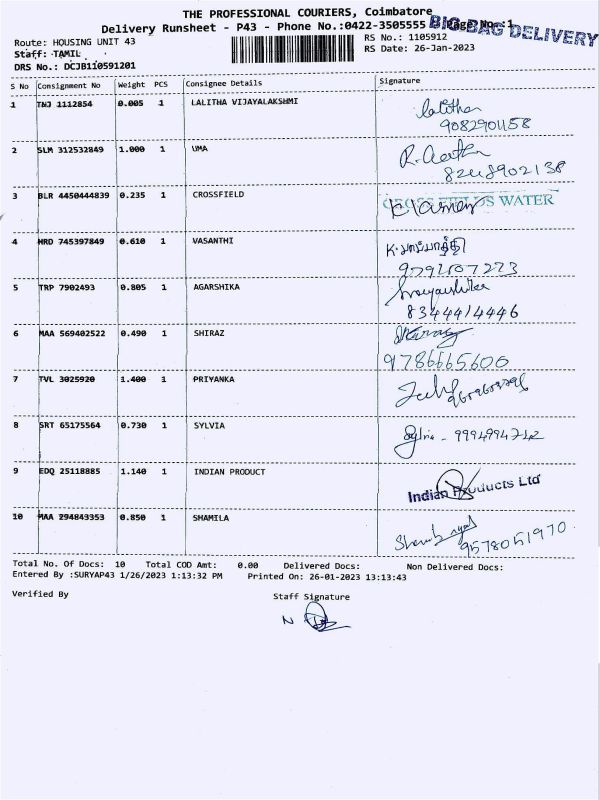 THE PROFESSIONAL COURIERS, Coimbatore
Delivery Runsheet - P43 - Phone No.:0422-3505555 Page No.:1
BIG BAG DELIVERY
Route: HOUSING UNIT 43
RS No.: 1105912
Staff: TAMIL
RS Date: 26-Jan-2023
DRS No.: DCJB110591201
S No Consignment No Weight PCS Consignee Details Signature
1 TNJ 1112854 0.005 1 LALITHA VIJAYALAKSHMI
lalitha
9082901158
2 SLM 312532849 1.000 1 UMA
8248902138
3 BLR 4450444839 0.235 1 CROSSFIELD
WATER
4 HRD 745397849 0.610 1 VASANTHI
5 TRP 7902493 0.805 1 AGARSHIKA
8344414446
6 MAA 569402522 0.490 1 SHIRAZ
9786665600
7 TVL 3025920 1.400 1 PRIYANKA
8 SRT 65175564 0.730 1 SYLVIA
Sylvia - 9994994742
9 EDQ 25118885 1.140 1 INDIAN PRODUCT
Indian Products Ltd
10 MAA 294843353 0.850 1 SHAMILA
9578051970
Total No. Of Docs: 10 Total COD Amt: 0.00 Delivered Docs: Non Delivered Docs:
Entered By :SURYAP43 1/26/2023 1:13:32 PM Printed On: 26-01-2023 13:13:43
Verified By Staff Signature